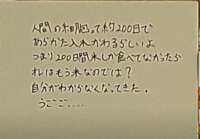 人間の細胞って約200日で
あらかた入れかわるらしいよ
つまり200日間米しか食べてなかったら
おれはもう米なのでは?
自分がわからなくなってきた。
うごごご....